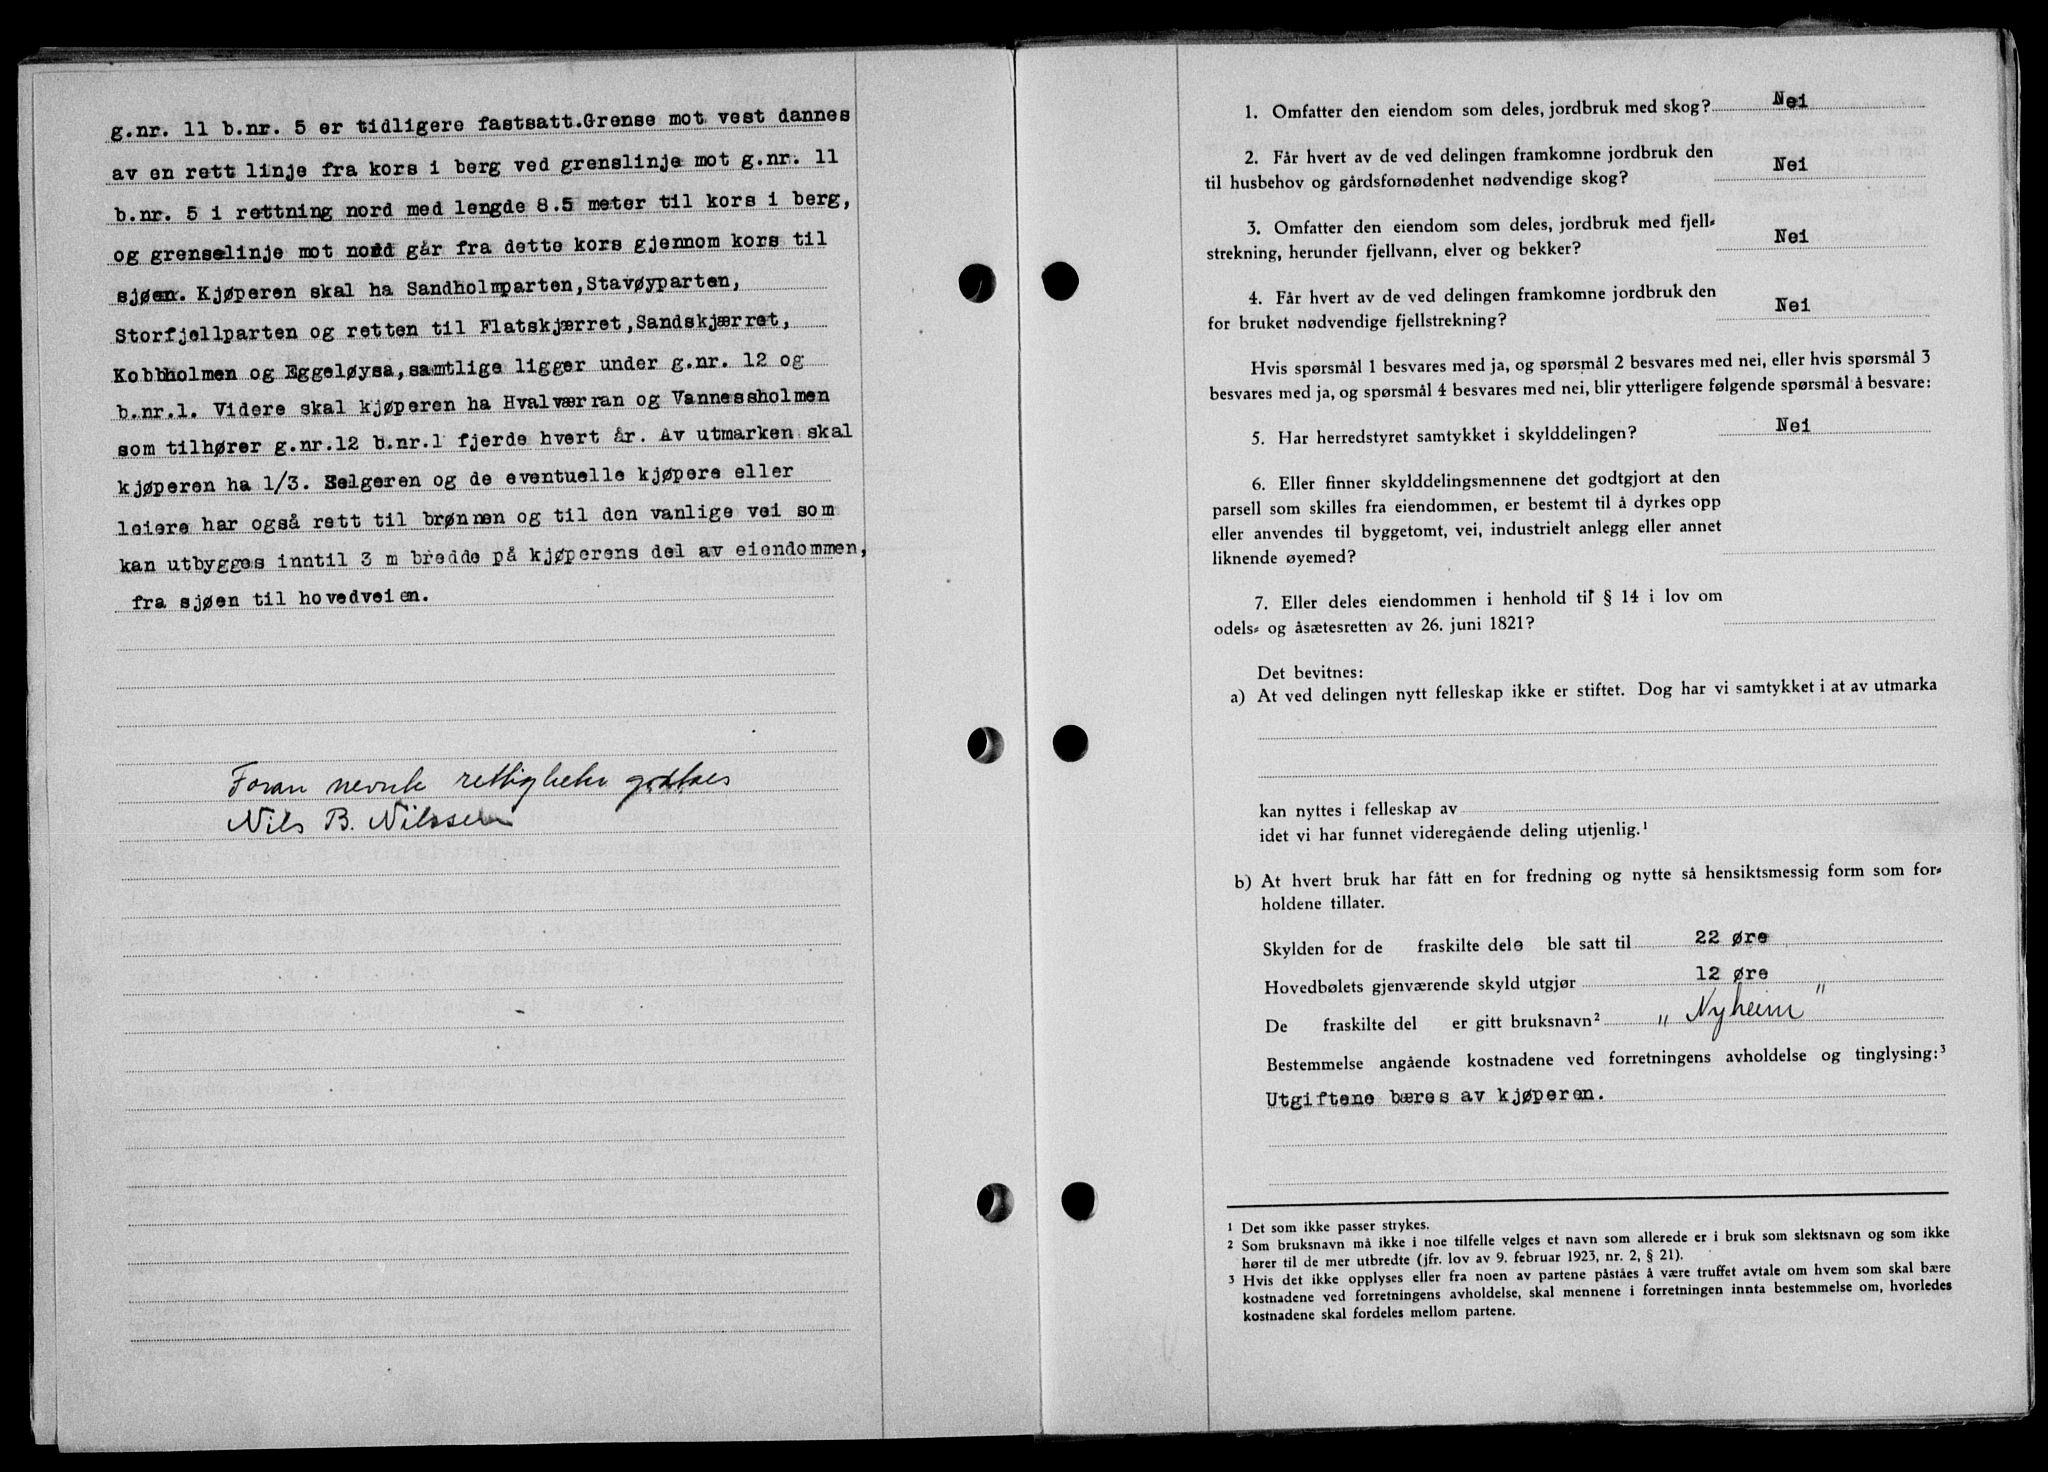 g.nr. 11 b.nr. 5 er tidligere fastsatt.Grense mot vest dannes
av en rett linje fra kors i berg ved grenslinje mot g.nr. 11
b.nr. 5 i rettning nord med lengde 8.5 meter til kors i berg,
og grenselinje mot nord går fra dette kors gjennom kors til
sjøen. Kjøperen skal ha Sandholmparten,Stavøyparten,
Storfjellparten og retten til Flatskjærret,Sandskjærret,
Kobbholmen og Eggeløysa,samtlige ligger under g.nr. 12 og
b.nr.1. Videre skal kjøperen ha Hvalværran og Vannessholmen
som tilhører g.nr.12 b.nr.1 fjerde hvert år. Av utmarken skal
kjøperen ha 1/3. Selgeren og de eventuelle kjøpere eller
leiere har også rett til brønnen og til den vanlige vei som
kan utbygges inntil 3 m bredde på kjøperens del av eiendommen,
fra sjøen til hovedveien.
Foran nevnte rettigheter godtaes
Nils B. Nilssen
1. Omfatter den eiendom som deles, jordbruk med skog? Nei
2. Får hvert av de ved delingen framkomne jordbruk den
til husbehov og gårdsfornødenhet nødvendige skog? Nei
3. Omfatter den eiendom som deles, jordbruk med fjell-
strekning, herunder fjellvann, elver og bekker? Nei
4. Får hvert av de ved delingen framkomne jordbruk den
for bruket nødvendige fjellstrekning? Nei
Hvis spørsmål 1 besvares med ja, og spørsmål 2 besvares med nei, eller hvis spørsmål 3
besvares med ja, og spørsmål 4 besvares med nei, blir ytterligere følgende spørsmål å besvare:
5. Har herredstyret samtykket i skylddelingen? Nei
6. Eller finner skylddelingsmennene det godtgjort at den
parsell som skilles fra eiendommen, er bestemt til å dyrkes opp
eller anvendes til byggetomt, vei, industrielt anlegg eller annet
liknende øyemed?
7. Eller deles eiendommen i henhold til § 14 i lov om
odels- og åsætesretten av 26. juni 1821?
Det bevitnes:
a) At ved delingen nytt felleskap ikke er stiftet. Dog har vi samtykket i at av utmarka
kan nyttes i felleskap av
idet vi har funnet videregående deling utjenlig.¹
b) At hvert bruk har fått en for fredning og nytte så hensiktsmessig form som for-
holdene tillater.
Skylden for de fraskilte dele ble satt til 22 øre
Hovedbølets gjenværende skyld utgjør 12 øre
De fraskilte del er gitt bruksnavn² „ Nyheim "
Bestemmelse angående kostnadene ved forretningens avholdelse og tinglysing:³
Utgiftene bæres av kjøperen.
¹ Det som ikke passer strykes.
² Som bruksnavn må ikke i noe tilfelle velges et navn som allerede er i bruk som slektsnavn og som ikke
hører til de mer utbredte (jfr. lov av 9. februar 1923, nr. 2, § 21).
³ Hvis det ikke opplyses eller fra noen av partene påståes å være truffet avtale om hvem som skal bære
kostnadene ved forretningens avholdelse, skal mennene i forretningen innta bestemmelse om, hvorledes
kostnadene skal fordeles mellom partene.